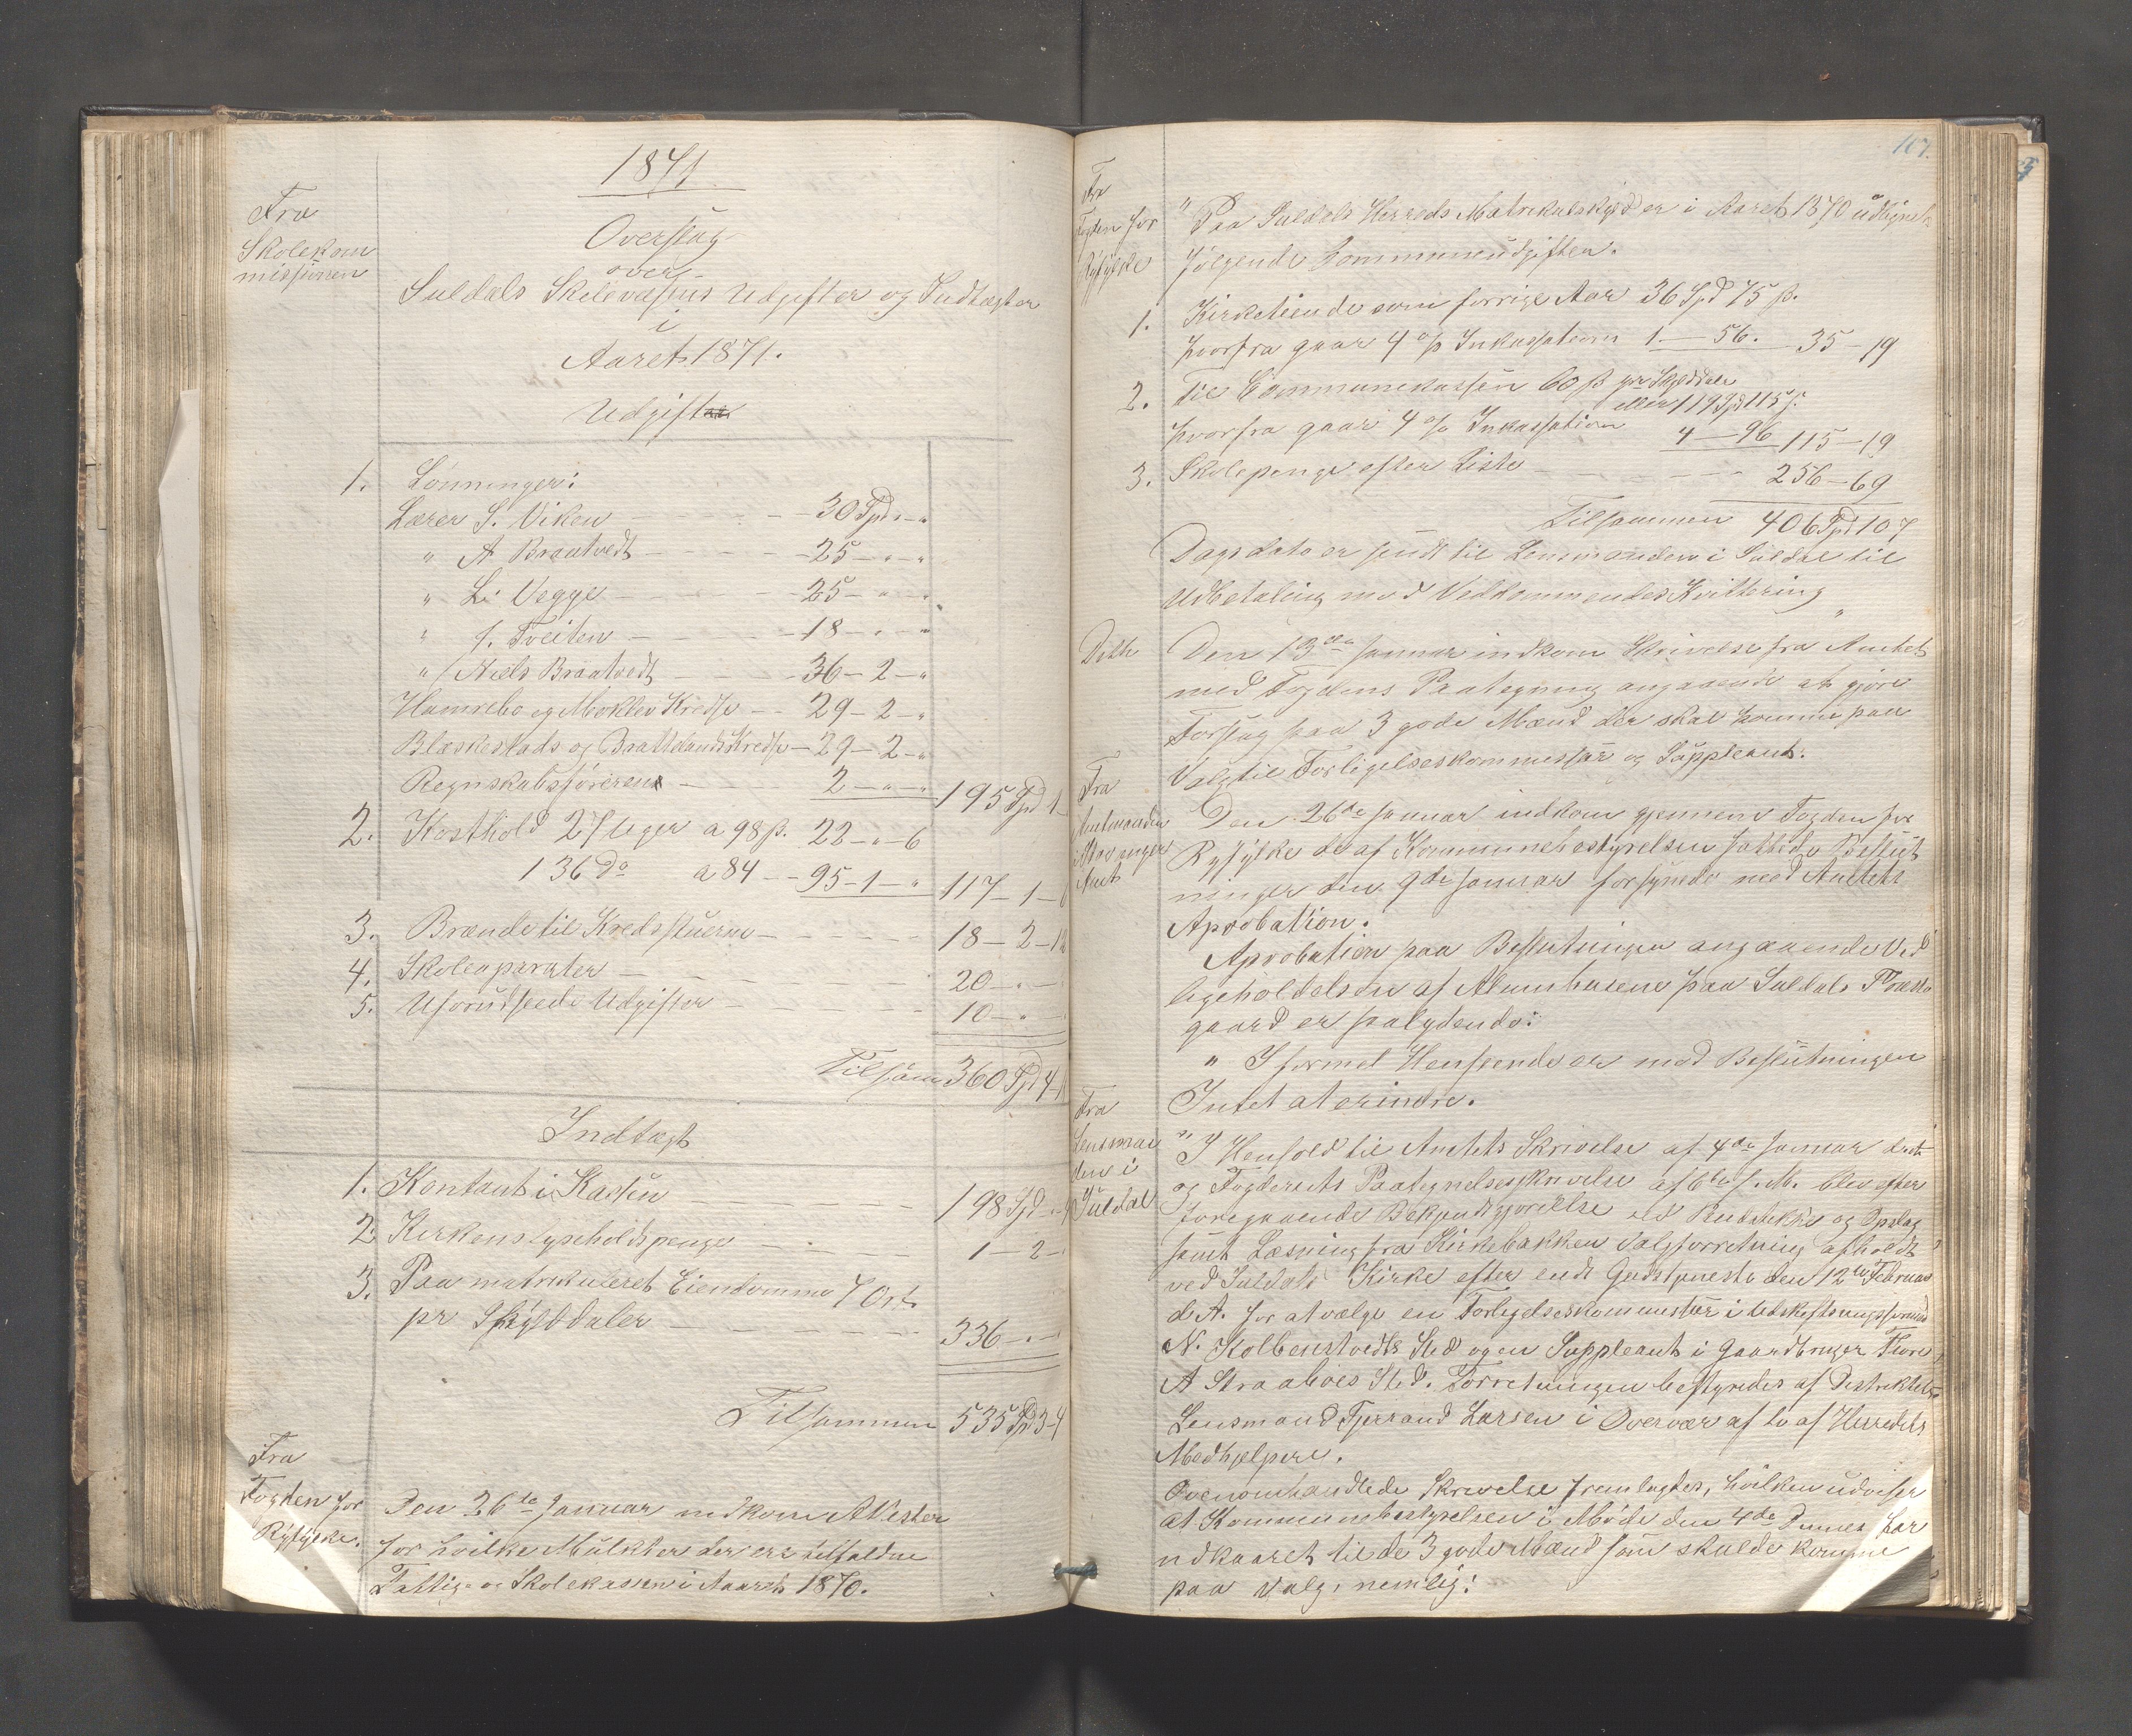 1871
Fra
Skolekom
missionen
Overslag
over
Suldals Skolevæsens Udgifter og Indtægter
i
Aaret 1871.
Udgift
1. Lønninger:
Lærer S. Viken — 30 Spd - "
" A Braatvedt — 25 - " - "
" L. Vegge — 25 - " - "
" J. Tveiten — 18 - " - "
" Niels Braatvedt — 36 - 2 - "
Hamrebø og Mokleiv Kredse — 29 - 2 - "
Bleskestads og Brattelands Kredse — 29 - 2 - "
Regnskabsføreren — 2 - " - " 195 Spd 1
2. Kosthold 27 Uger a 98 ß. 22 - " - 6
136 Do a 84 — 95 - 1 - " 117 - 1 - 6
3. Brænde til Kredsstuerne — 18 - 2 - 12
4. Skoleaparater — 20 - " -
5. Uforudseede Udgifter — 10 - " -
Tilsam 360 Spd 4 -
Indtægt
1. Kontant i Kassen — 198 Spd - " - 4
2. Kirkens lyseholdspenge — 1 - 2 -
3. Paa matrikuleret Eiendomme 7 Ort
pr Skylddaler — 336 - " -
Tilsammen 535 Spd 3 - 4
Fra
Fogden for
Ryfylke.
Den 26de Januar indkom Attester
for hvilke Mulkter der er tilfaldne
Fattig- og Skolekassen i Aaret 1870.
107.
Fra
Fogden for
Ryfylke
" Paa Suldals Herreds Matrikulskyld er i Aaret 1870 udlignet
følgende Kommuneudgifter.
1. Kirketiende som forrige Aar 36 Spd 75 ß.
hvorfra gaar 4 % Inkassation 1 — 56. 35 - 19
2. Til Communekassen 60 ß pr Skylddaler
eller 119 Spd 115 ß.
hvorfra gaar 4 % Inkassation 4 — 96 115 - 19
3. Skolepenge efter Liste — 256 - 69
Tilsammen 406 Spd 107
Dagsdato er sendt til Lensmanden i Suldal til
Udbetaling mod Vedkommendes Kvittering "
Ditto
Den 13de Januar indkom Skrivelse fra Amtet
med Fogdens Paategning angaaende at gjøre
Forslag paa 3 gode Mænd der skal komme paa
Valg til Forligelseskommissær og Suppleant.
Fra
Amtmanden
i Stavanger
Amt
Den 26de Januar indkom gjennem Fogden for
Ryfylke de af Kommunebestyrelsen fattede Beslut
ninger den 9de Januar forsynede med Amtets
Aprobation.
Aprobation paa Beslutningen angaaende Ved
ligeholdelsen af Alumhusene paa Suldals Præste
gaard er saalydende:
" I formel Henseende er mod Beslutningen
Intet at erindre.
Fra
Lensman
den i
Suldal
" I Henhold til Amtets Skrivelse af 4de Januar
og Fogderiets Paategnelsesskrivelse af 6te s. M. blev efter
foregaaende Bekjendtgjørelse ved Budstikke og Opslag
samt Læsning fra Kirkebakken Valgforretning afholdt
ved Suldals Kirke efter endt Gudstjeneste den 12te Februar
d. A. for at vælge en Forligelseskommissær i Udskiftningsformand
N. Kolbenstvedts Sted og en Suppleant i Gaardbruger Thore
A Straabøes Sted. Forretningen bestyredes af Distriktets
Lensmand Tjerrand Larsen i Overvær af to af Herredets
Medhjelpere.
Ovenomhandlede Skrivelse fremlagtes, hvilken udviser
at Kommunebestyrelsen i Møde den 4de Dennes har
udkaaret til de 3 gode Mænd som skulde komme
paa Valg, nemlig: